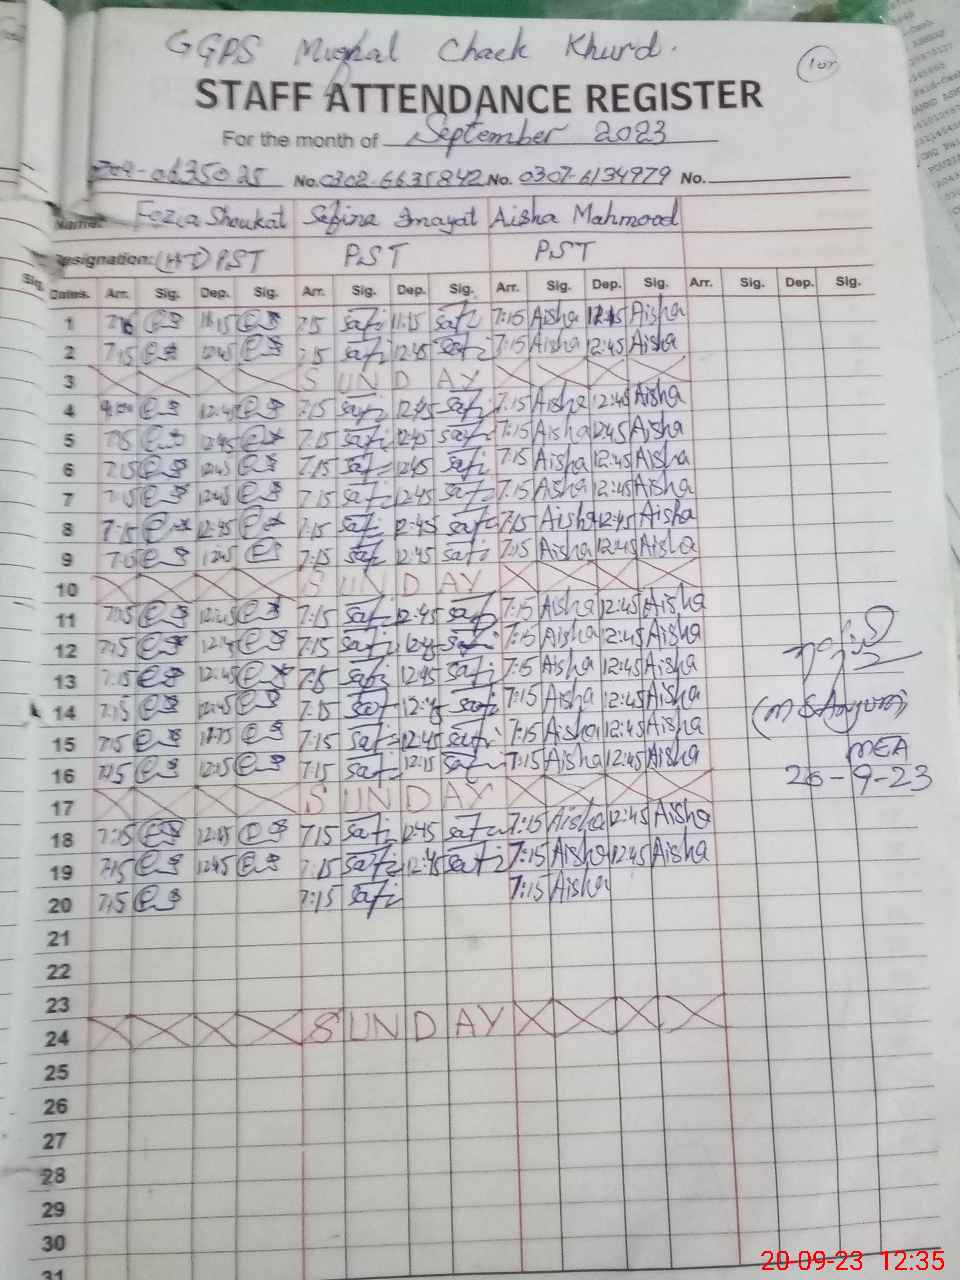 GGPS Mughal Chack Khurd.
STAFF ATTENDANCE REGISTER
For the month of September 2023
No. 0302-6635842 No. 0307-6134979 No.
Name: Fozia Shoukat Safina Inayat Aisha Mahmood
Designation: (HT) PST PST PST
Dates. Arr. Sig. Dep. Sig. Arr. Sig. Dep. Sig. Arr. Sig. Dep. Sig. Arr. Sig. Dep. Sig.
1 7:15 Safi 11:15 Safi 7:15 Aisha Aisha
2 7:15 12:45 7:15 Safi 12:45 Safi 7:15 Aisha 12:45 Aisha
3 SUNDAY
4 12:45 7:15 Safi 12:45 Safi 7:15 Aisha 12:45 Aisha
5 12:45 7:15 Safi 12:45 Safi 7:15 Aisha 12:45 Aisha
6 7:15 12:45 7:15 Safi 12:45 Safi 7:15 Aisha 12:45 Aisha
7 7:15 12:45 7:15 Safi 12:45 Safi 7:15 Aisha 12:45 Aisha
8 7:15 12:45 7:15 Safi 12:45 Safi 7:15 Aisha 12:45 Aisha
9 7:15 12:45 7:15 Safi 12:45 Safi 7:15 Aisha 12:45 Aisha
10 SUNDAY
11 12:45 7:15 Safi 12:45 Safi 7:15 Aisha 12:45 Aisha
12 7:15 7:15 Safi 12:45 Safi 7:15 Aisha 12:45 Aisha
13 7:15 12:45 7:15 Safi 12:45 Safi 7:15 Aisha 12:45 Aisha
14 7:15 12:45 7:15 Safi Safi 7:15 Aisha 12:45 Aisha
15 7:15 7:15 Safi 12:45 Safi 7:15 Aisha 12:45 Aisha
16 7:15 12:15 7:15 Safi 12:15 Safi 7:15 Aisha 12:45 Aisha
17 SUNDAY
18 7:15 12:45 7:15 Safi 12:45 Safi 7:15 Aisha 12:45 Aisha
19 7:15 12:45 7:15 Safi 12:45 Safi 7:15 Aisha 12:45 Aisha
20 7:15 7:15 Safi 7:15 Aisha
21
22
23
24 SUNDAY
25
26
27
28
29
30
31
MEA
20-9-23
20-09-23 12:35